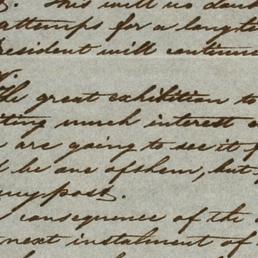 . This will no doub
attempts for a long ti
esident will continue
The great exhibition to
ting much interest a
are going to see it f
be one of them, but
my post.
consequence of the
next instalment of